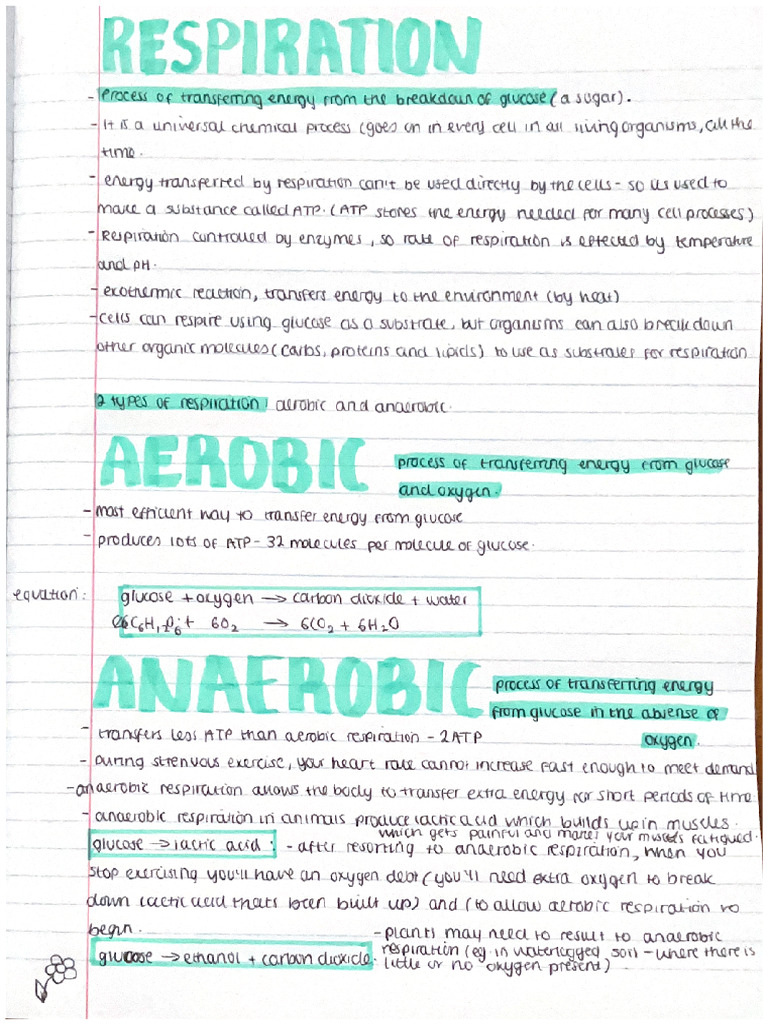 RESPIRATION
- Process of transferring energy from the breakdown of glucose (a sugar).
- It is a universal chemical process (goes on in every cell in all living organisms, all the
time.
- energy transferred by respiration can't be used directly by the cells - so its used to
make a substance called ATP. (ATP stores the energy needed for many cell processes)
- Respiration controlled by enzymes, so rate of respiration is effected by temperature
and pH.
- exothermic reaction, transfers energy to the environment (by heat)
- cells can respire using glucose as a substrate, but organisms can also break down
other organic molecules (carbs, proteins and lipids) to use as substrates for respiration
2 types of respiration: aerobic and anaerobic.
AEROBIC
process of transferring energy from glucose
and oxygen.
- most efficient way to transfer energy from glucose
- produces lots of ATP - 32 molecules per molecule of glucose.
equation:
glucose + oxygen → carbon dioxide + water
C6H12O6 + 6O2 → 6CO2 + 6H2O
ANAEROBIC
process of transferring energy
from glucose in the absense of
oxygen.
- transfers less ATP than aerobic respiration - 2ATP
- During strenuous exercise, your heart rate cannot increase fast enough to meet demand
- anaerobic respiration allows the body to transfer extra energy for short periods of time
- anaerobic respiration in animals produce lactic acid which builds up in muscles.
which gets painful and makes your muscles fatigued.
glucose → lactic acid: - after resorting to anaerobic respiration, when you
stop exercising you'll have an oxygen debt (you'll need extra oxygen to break
down lactic acid thats been built up) and (to allow aerobic respiration to
begin.
- plants may need to result to anaerobic
respiration (eg in waterlogged soil - where there is
little or no oxygen present)
glucose → ethanol + carbon dioxide.